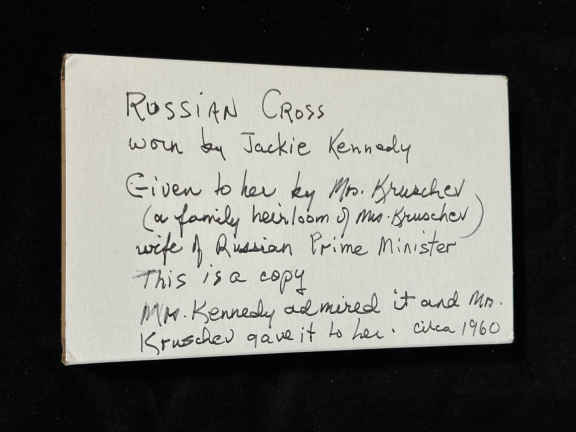 RUSSIAN CROSS
worn by Jackie Kennedy
Given to her by Mrs. Kruschev
(a family heirloom of Mrs. Kruschev)
wife of Russian Prime Minister
This is a copy
Mrs. Kennedy admired it and Mrs.
Kruschev gave it to her. circa 1960